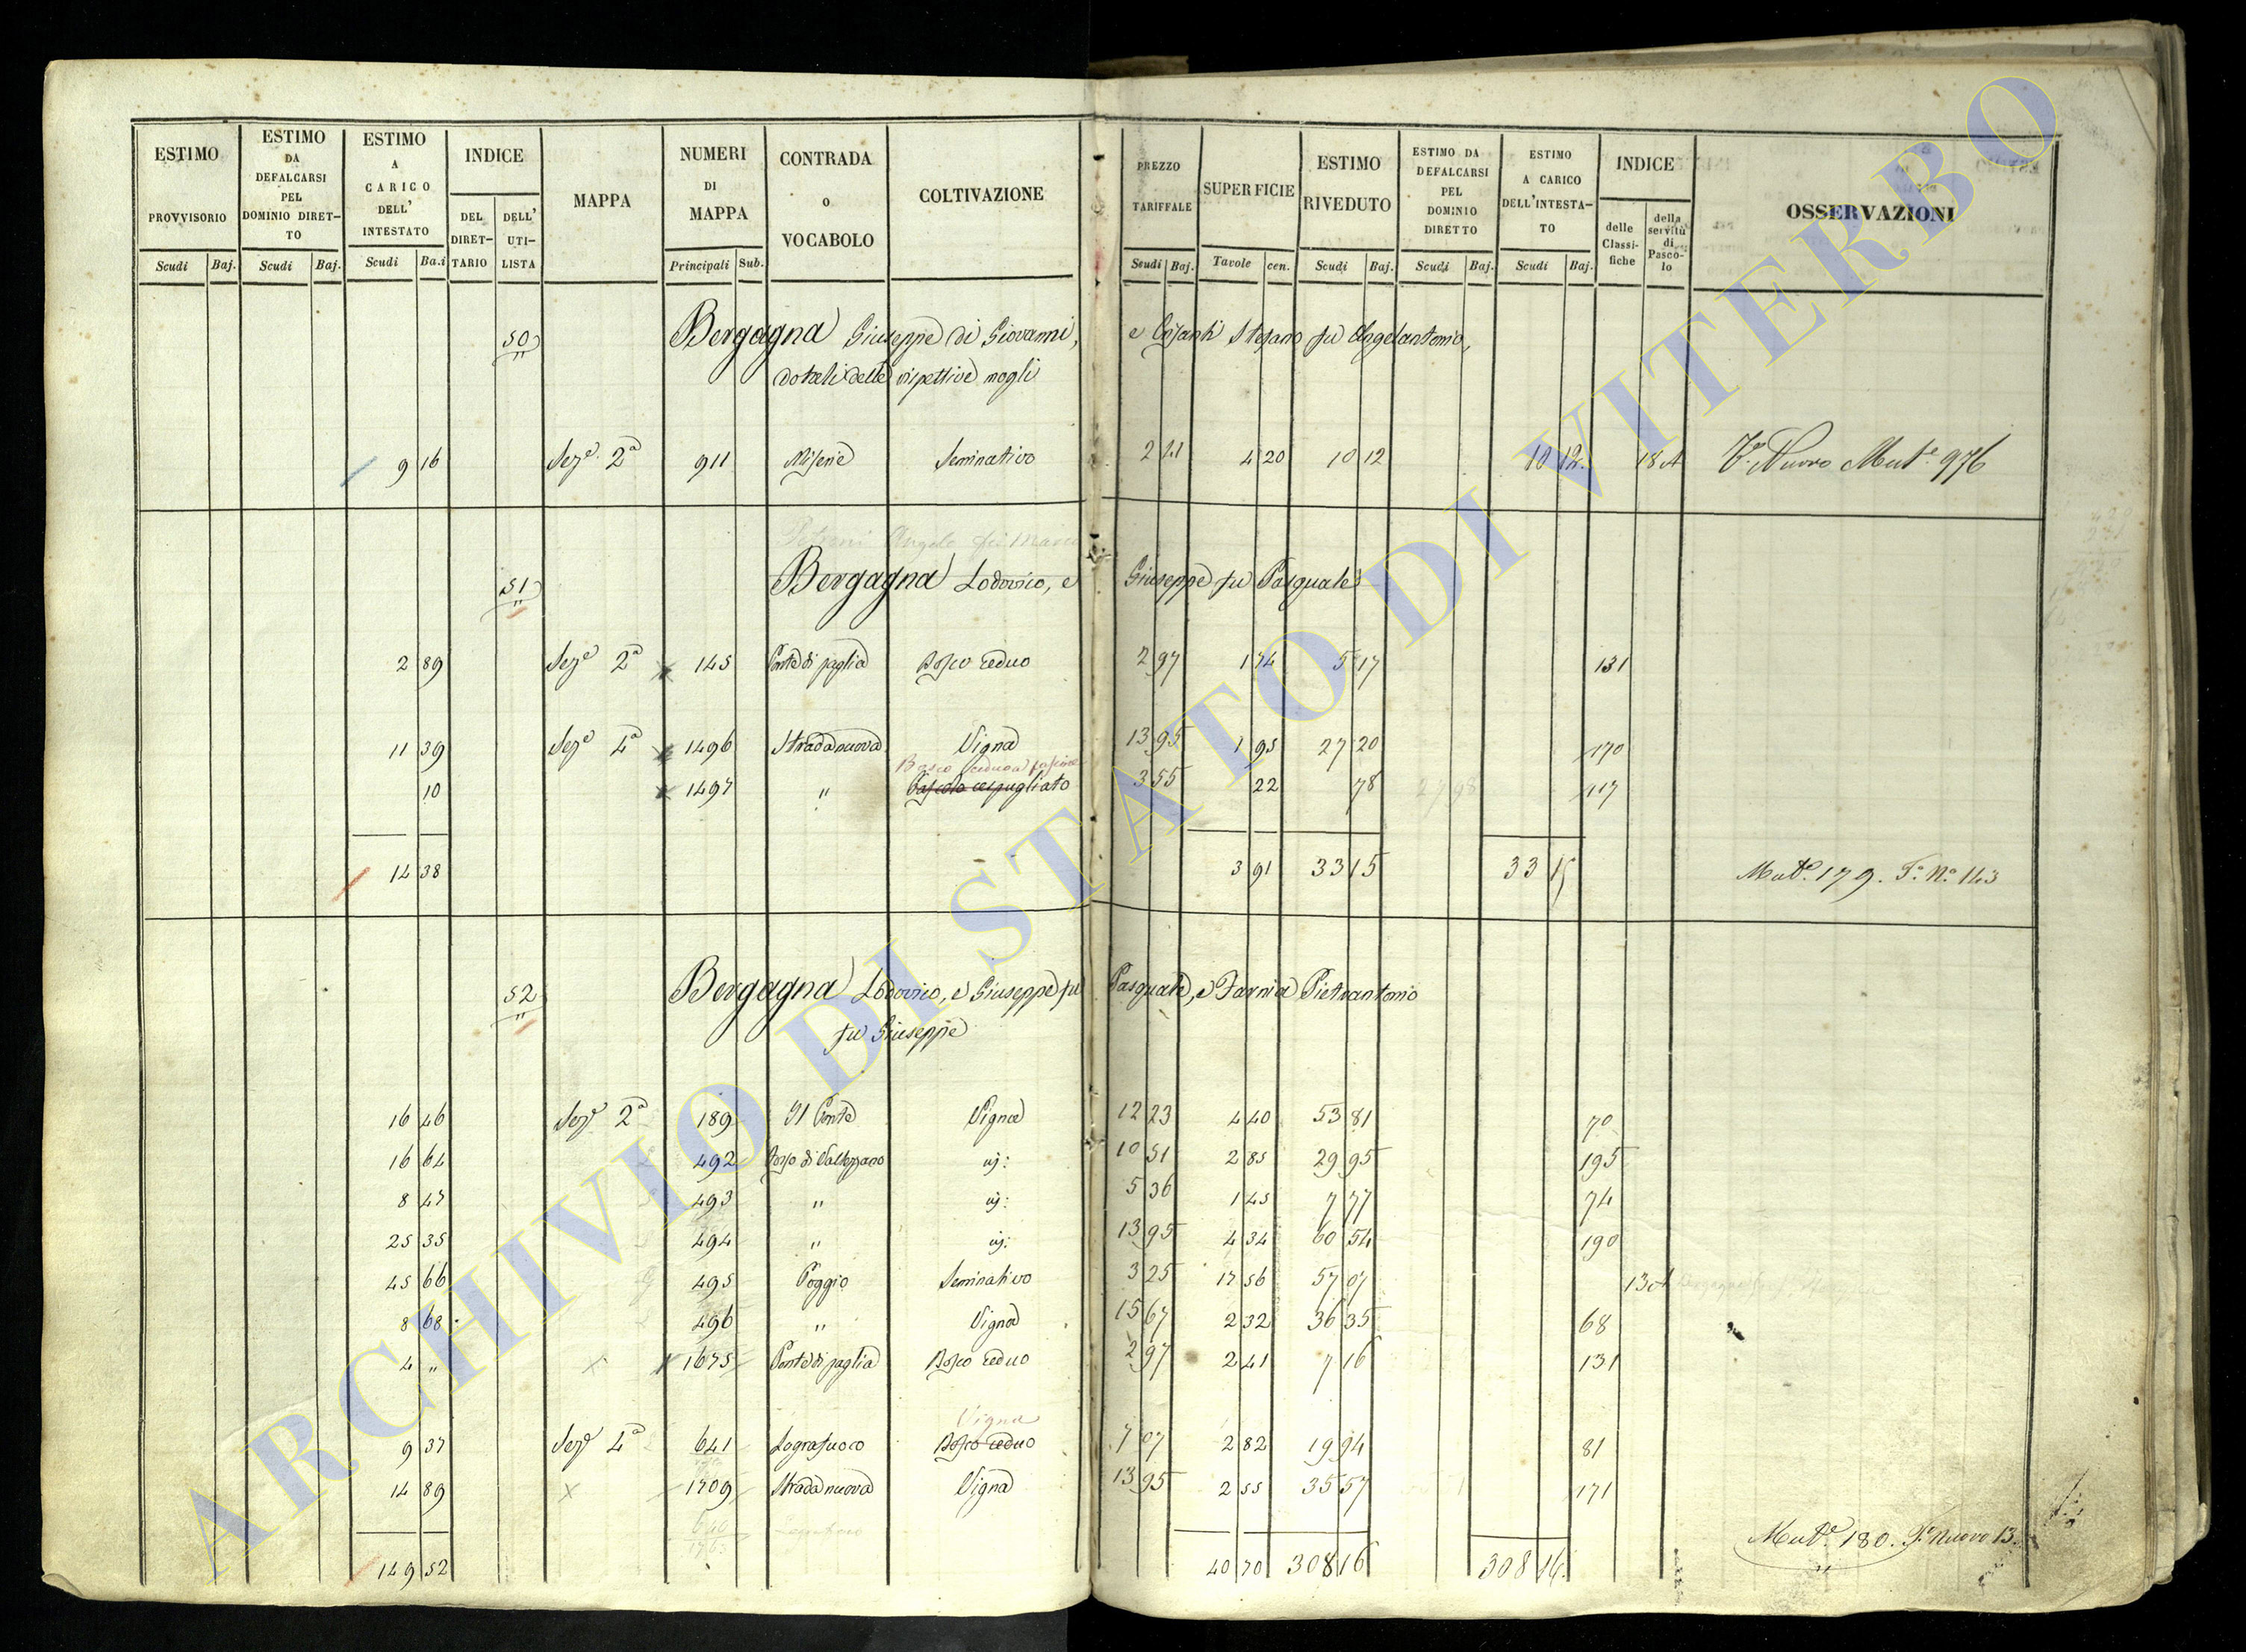 ESTIMO PROVVISORIO Scudi Baj.
ESTIMO DA DEFALCARSI PEL DOMINIO DIRET-TO Scudi Baj.
ESTIMO A CARICO DELL' INTESTATO Scudi Ba.i
INDICE DEL DIRET-TARIO DELL' UTI-LISTA
MAPPA
NUMERI DI MAPPA Principali Sub.
CONTRADA o VOCABOLO
COLTIVAZIONE
PREZZO TARIFFALE Scudi Baj.
SUPERFICIE Tavole cen.
ESTIMO RIVEDUTO Scudi Baj.
ESTIMO DA DEFALCARSI PEL DOMINIO DIRETTO Scudi Baj.
ESTIMO A CARICO DELL'INTESTA-TO Scudi Baj.
INDICE delle Classi-fiche della servitù di Pasco-lo
OSSERVAZIONI
50 Bergagna Giuseppe di Giovanni, e Stefano fu Angelantonio,
dotali delle rispettive mogli
9 16 Seze 2a 911 Seminativo 2 41 4 20 10 12 10 12 18 A Nuovo Mute 976
Angelo fu Marco
51 Bergagna Lodovico, e Giuseppe fu Pasquale
2 89 Seze 2a 145 Ponte di paglia Bosco ceduo 2 97 1 74 5 17 131
11 39 Seze 4a 1496 Strada nuova Vigna 13 95 1 95 27 20 170
Bosco ceduo
10 1497 " Pascolo cespugliato 3 55 22 78 27 98 117
14 38 3 91 33 15 33 15 Mute. 179. No 143
52 Bergagna Lodovico, e Giuseppe fu Pasquale, e Farnia Pietrantonio
fu Giuseppe
16 46 Seze 2a 189 Il Ponte Vigna 12 23 4 40 53 81 70
16 64 492 10 51 2 85 29 95 195
8 47 493 " 5 36 1 45 7 77 74
25 35 494 " 13 95 4 34 60 54 190
45 66 495 Poggio Seminativo 3 25 17 56 57 07 13 A
8 68 496 " Vigna 15 67 2 32 36 35 68
4 " 1675 Ponte di paglia Bosco ceduo 2 97 2 41 7 16 131
Vigna
9 37 Seze 4a 641 Lografuoco Bosco ceduo 7 07 2 82 19 94 81
14 89 1709 Strada nuova Vigna 13 95 2 55 35 57 171
149 52 40 70 308 16 308 16. Mute. 180. nuovo 13
ARCHIVIO DI STATO DI VITERBO